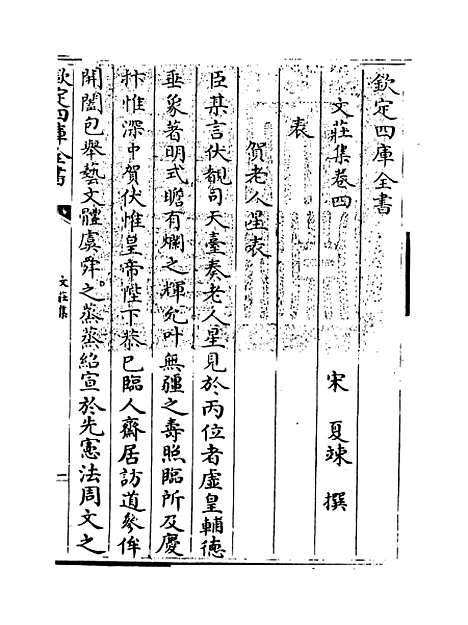 欽定四庫全書
文莊集卷四
宋 夏竦 撰
表
賀老人星表
臣某言伏覩司天臺奏老人星見於丙位者虛皇輔德
垂象著明式瞻有爛之輝允叶無疆之壽照臨所及慶
抃惟深中賀伏惟皇帝陛下恭巳臨人齋居訪道參侔
開闔包舉藝文體虞舜之蒸蒸紹宣於先憲法周文之
欽定四庫全書
文莊集